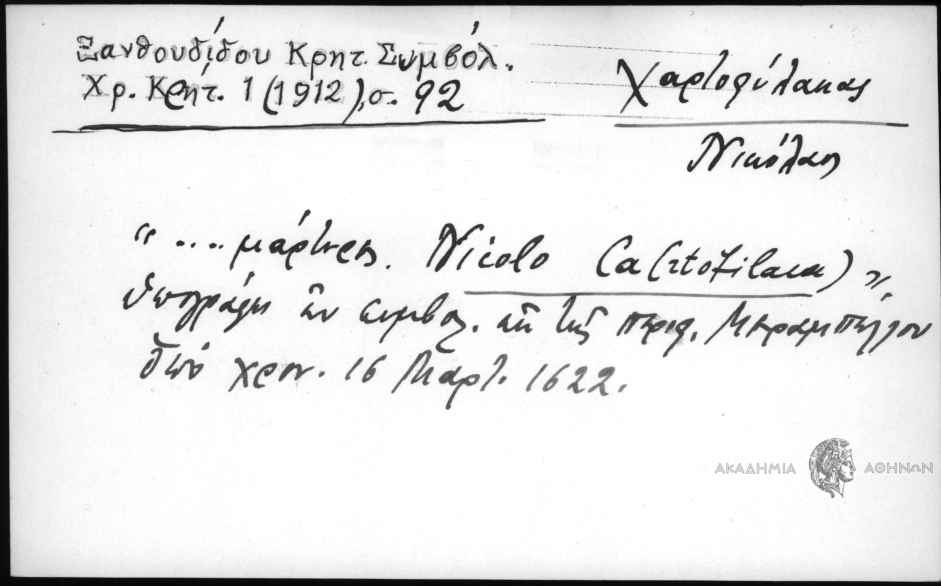 Ξανθουδίδου Κρητ. Συμβόλ.
Χρ. Κρήτ. 1 (1912), σ. 92
Χαρτοφύλακας
Νικόλαος
“ .... μάρτυρες. Nicolo Ca(rtofilaca) „
ὑπογράφει ἐν συμβολ. τῆς περιφ. Μεραμπέλλου
ὑπό χρον. 16 Μαρτ. 1622.
ΑΚΑΔΗΜΙΑ ΑΘΗΝΩΝ